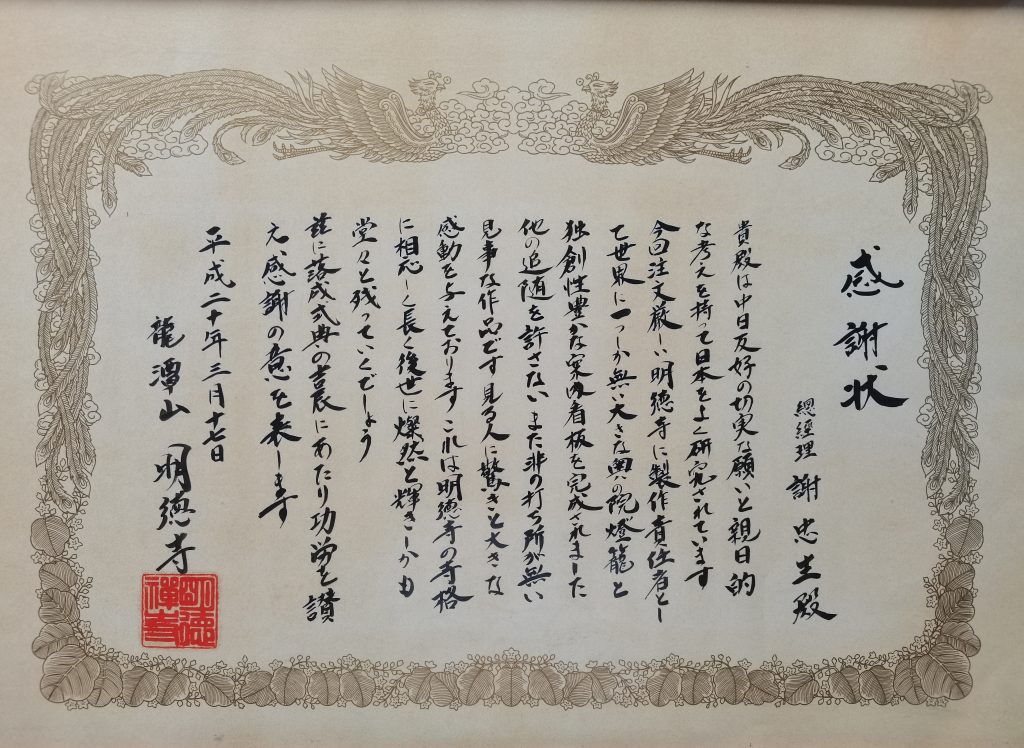 感謝状
總經理 謝忠主殿
貴殿は中日友好の切実な願いと親日的
な考えを持って日本をよく研究されています
今回注文厳しい明徳寺に製作責任者とし
て世界に一つしか無い大きな奥の院燈籠と
独創性豊かな案内看板を完成されました
他の追随を許さないまた非の打ち所が無い
見事な作品です見る人に驚きと大きな
感動を与えております これは明徳寺の寺格
に相応しく長く後世に燦然と輝きしかも
堂々と残っていくでしょう
茲に落成式典の吉辰にあたり功労を讃
え感謝の意を表します
平成二十年三月十七日
龍潭山 明徳寺
明徳禅寺